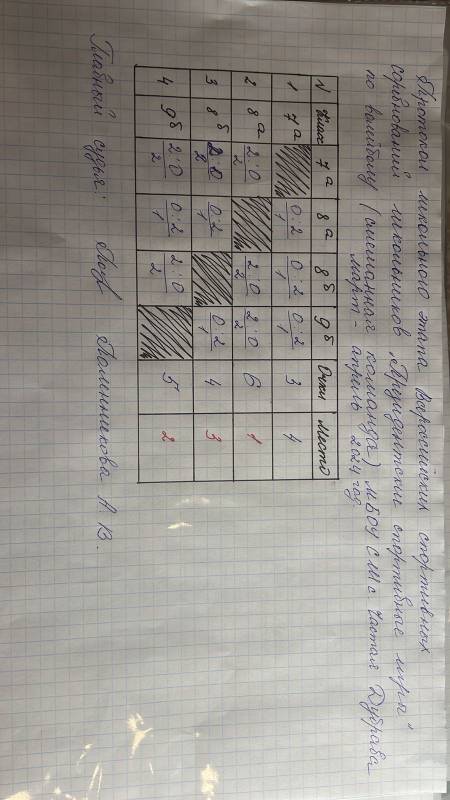 Протокол школьного этапа Всероссийских спортивных
соревнований школьников „Президентские спортивные игры"
по волейболу (смешанная команда) МБОУ СШ с. Частая Дубрава
март - апрель 2024 год.
N Класс 7а 8а 8б 9б Очки Место
1 7а 0:2 1 0:2 1 0:2 1 3 4
2 8а 2:0 2 2:0 2 2:0 2 6 1
3 8б 2:0 2 0:2 1 0:2 1 4 3
4 9б 2:0 2 0:2 1 2:0 2 5 2
Главный судья: А. В.